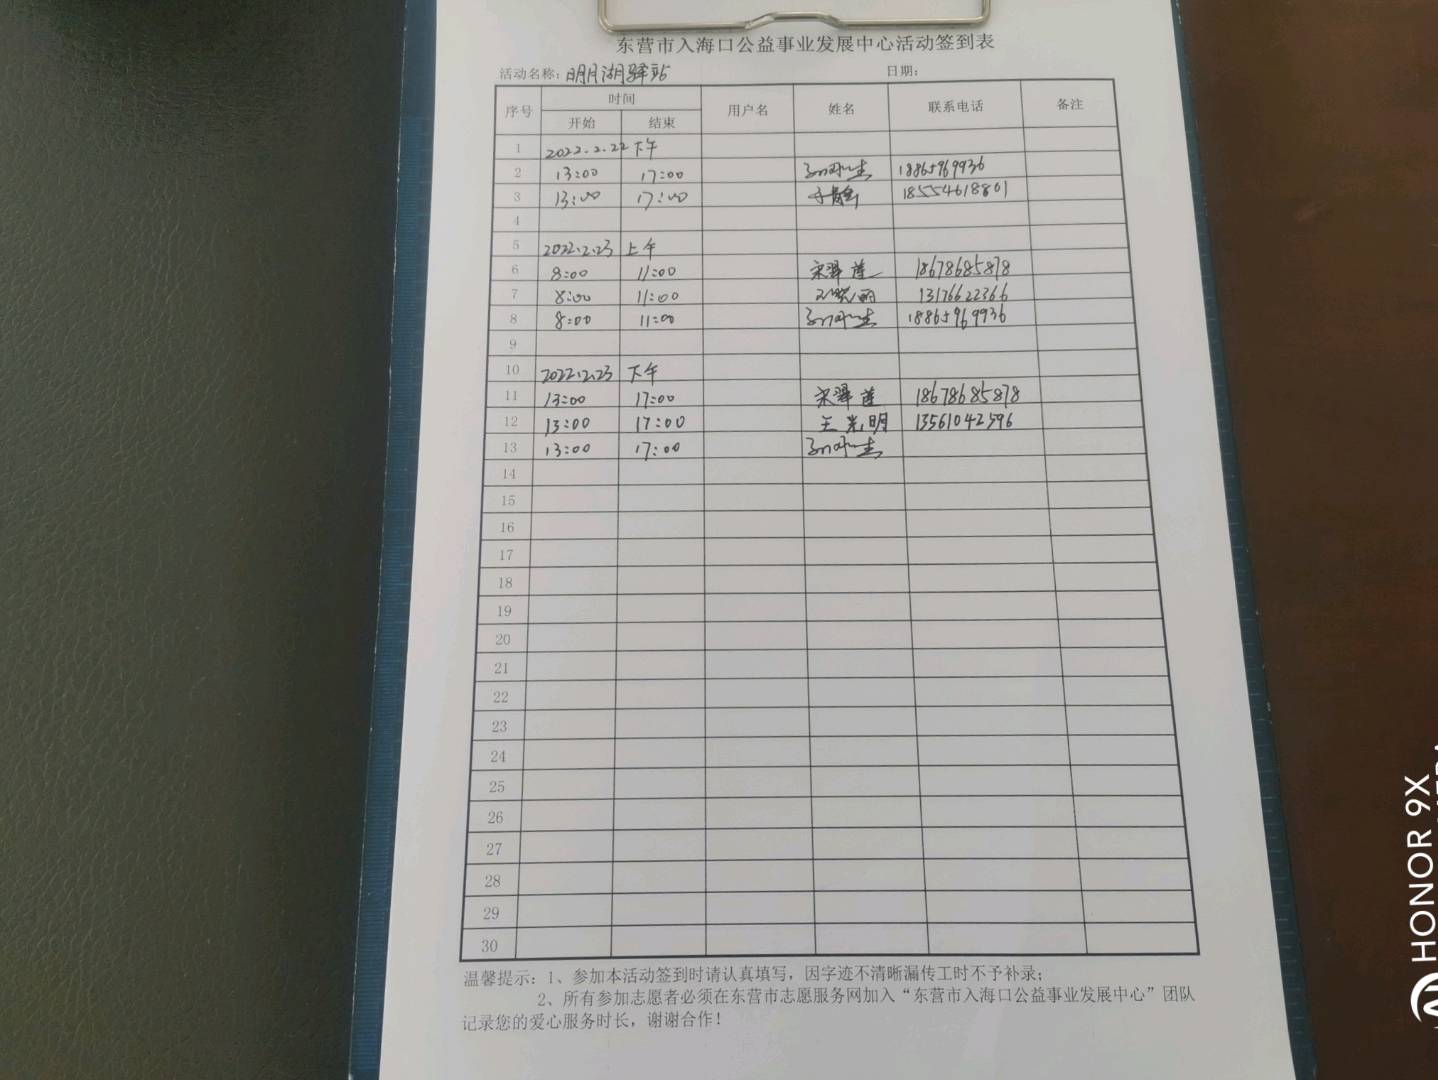 东营市入海口公益事业发展中心活动签到表
活动名称：明月湖驿站 日期：
序号 时间 用户名 姓名 联系电话 备注
开始 结束
1 2022.2.22 下午
2 13:00 17:00 18865969936
3 13:00 17:00 18554618801
4
5 2022.2.23 上午
6 8:00 11:00 宋翠莲 18678685878
7 8:00 11:00 13176622366
8 8:00 11:00 18865969936
9
10 2022.2.23 下午
11 13:00 17:00 宋翠莲 18678685878
12 13:00 17:00 王光明 13561042596
13 13:00 17:00
14
15
16
17
18
19
20
21
22
23
24
25
26
27
28
29
30
温馨提示：1、参加本活动签到时请认真填写，因字迹不清晰漏传工时不予补录；
2、所有参加志愿者必须在东营市志愿服务网加入“东营市入海口公益事业发展中心”团队
记录您的爱心服务时长，谢谢合作！
HONOR 9X